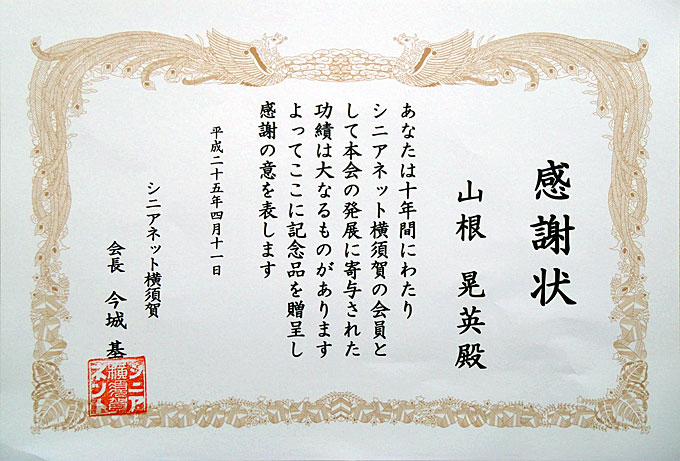 感謝状
山根 晃英殿
あなたは十年間にわたり
シニアネット横須賀の会員と
して本会の発展に寄与された
功績は大なるものがあります
よってここに記念品を贈呈し
感謝の意を表します
平成二十五年四月十一日
シニアネット横須賀
会長 今城 基
シニア
横須賀
ネット